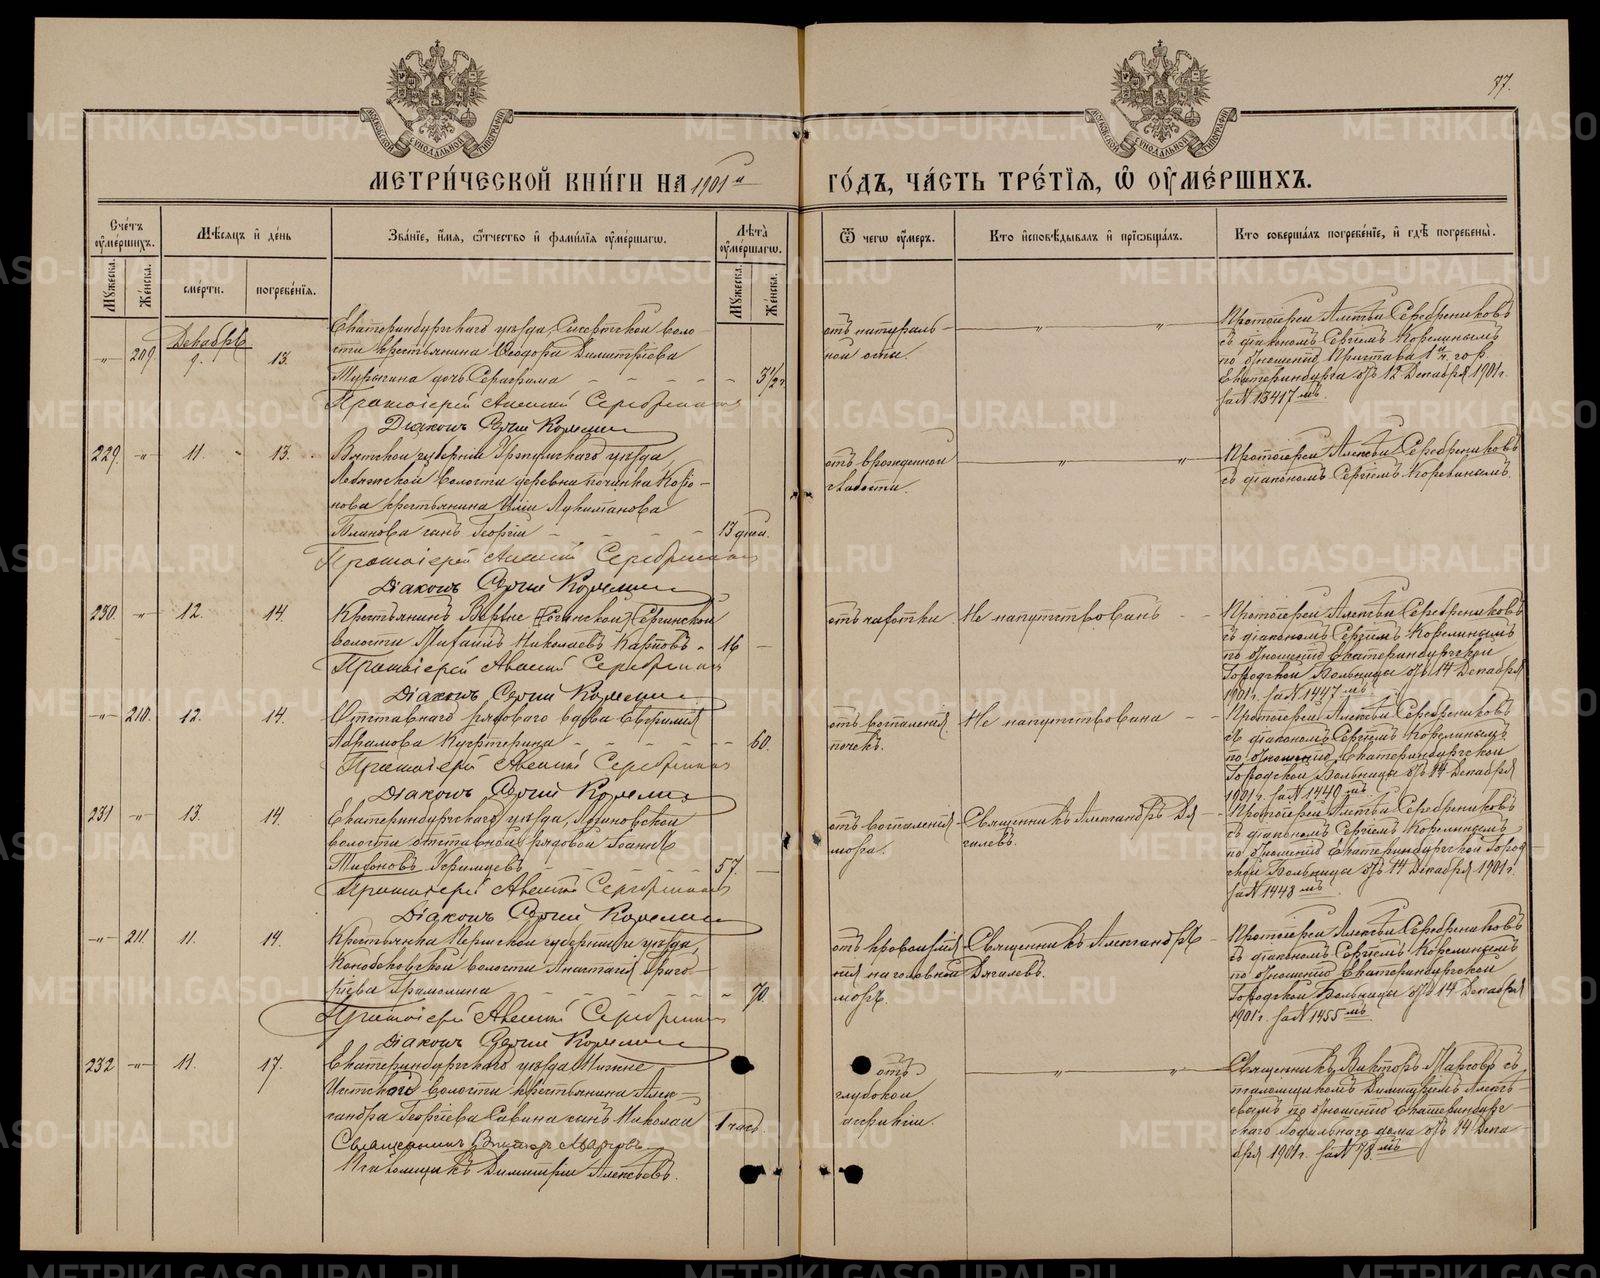 77.
МЕТРИ́ЧЕСКОЙ КНИ́ГИ НА 1901й
ГО́ДЪ, ЧА́СТЬ ТРЕ́ТЇѦ, Ѽ ОУ҆МЕ́РШИХЪ.
Сче́тъ оу҆ме́ршихъ.
Мѣ́сѧцъ и҆ де́нь
Зва́нїе, и҆́мѧ, ѻ҆́тчество и҆ фами́лїѧ оу҆ме́ршагѡ.
Лѣ́та оу҆ме́ршагѡ.
Ѿ чегѡ̀ оу҆́меръ.
Кто̀ и҆сповѣ́дывалъ и҆ прїѡбща́лъ.
Кто̀ соверша́лъ погребе́нїе, и҆ гдѣ̀ погребены̀.
Мꙋ́жеска.
Же́нска.
сме́рти.
погребе́нїѧ.
Мꙋ́жеска.
Же́нска.
Декабрь
-"- 209. 9. 13.
Екатеринбургскаго уѣзда, Сысертской воло-
сти крестьянина Ѳеодора Димитріева
дочь Серафима 3½ г
Протоіерей Алексій Серебренниковъ
Діаконъ Сергій Корелинъ
отъ натураль-
ной оспы.
Протоіерей Алексій Серебрениковъ
съ діакономъ Сергіемъ Корелинымъ
по отношенію Пристава 1 ч. гор.
Екатеринбурга отъ 12 Декабря 1901 г.
за № 13417 мъ
229. -"- 11. 13.
Вятской губерніи уѣзда,
волости деревни починка
крестьянина Иліи
сынъ Георгій 13 дней.
Протоіерей Алексій Серебренниковъ
Діаконъ Сергій Корелинъ
отъ врожденной
слабости.
Протоіерей Алексій Серебрениковъ
съ діакономъ Сергіемъ Корелинымъ.
230. -"- 12. 14.
Крестьянинъ Верхне Сергинской
волости Михаилъ Николаевъ Карповъ 16 -
Протоіерей Алексій Серебренниковъ
Діаконъ Сергій Корелинъ
отъ чахотки.
Не напутствованъ
Протоіерей Алексій Серебрениковъ
съ діакономъ Сергіемъ Корелинымъ
по отношенію Екатеринбургской
Городской Больницы отъ 14 Декабря
1901 г. за № 1447 мъ
-"- 210. 12. 14.
Отставного рядоваго вдова Евфимія
Абрамова 60.
Протоіерей Алексій Серебренниковъ
Діаконъ Сергій Корелинъ
отъ воспаленія
почекъ.
Не напутствована
Протоіерей Алексій Серебрениковъ
съ діакономъ Сергіемъ Корелинымъ
по отношенію Екатеринбургской
Городской Больницы отъ 14 Декабря
1901 г. за № 1440 мъ
231 -"- 13. 14.
Екатеринбургскаго уѣзда,
волости отставной рядовой Іоаннъ
57. -
Протоіерей Алексій Серебренниковъ
Діаконъ Сергій Корелинъ
отъ воспаленія
мозга.
Священникъ Александръ Дя
гилевъ.
Протоіерей Алексій Серебрениковъ
съ діакономъ Сергіемъ Корелинымъ
по отношенію Екатеринбургской Город-
ской Больницы отъ 14 Декабря 1901 г.
за № 1448 мъ
-"- 211. 11. 14.
Крестьянка Пермской губерніи и уѣзда,
волости Анастасія Григо-
рьева 70.
Протоіерей Алексій Серебренниковъ
Діаконъ Сергій Корелинъ
отъ кровоизлія
нія на головной
мозгъ.
Священникъ Александръ
Дягилевъ.
Протоіерей Алексій Серебрениковъ
съ діакономъ Сергіемъ Корелинымъ
по отношенію Екатеринбургской
Городской Больницы отъ 14 Декабря
1901 г. за № 1455 мъ
232 -"- 11. 17.
Екатеринбургскаго уѣзда Нижне
Исетской волости крестьянина Алек-
сандра Георгіева Савина сынъ Николай 1 часъ.
Священникъ Викторъ
Псаломщикъ Димитрій Алексѣевъ.
отъ
глубокой
асфикціи.
Священникъ Викторъ съ
псаломщикомъ Димитріемъ Алексѣ-
евымъ по отношенію Екатеринбург-
скаго Родильнаго дома отъ 14 Дека-
бря 1901 г. за № 78 мъ
METRIKI.GASO-URAL.RU